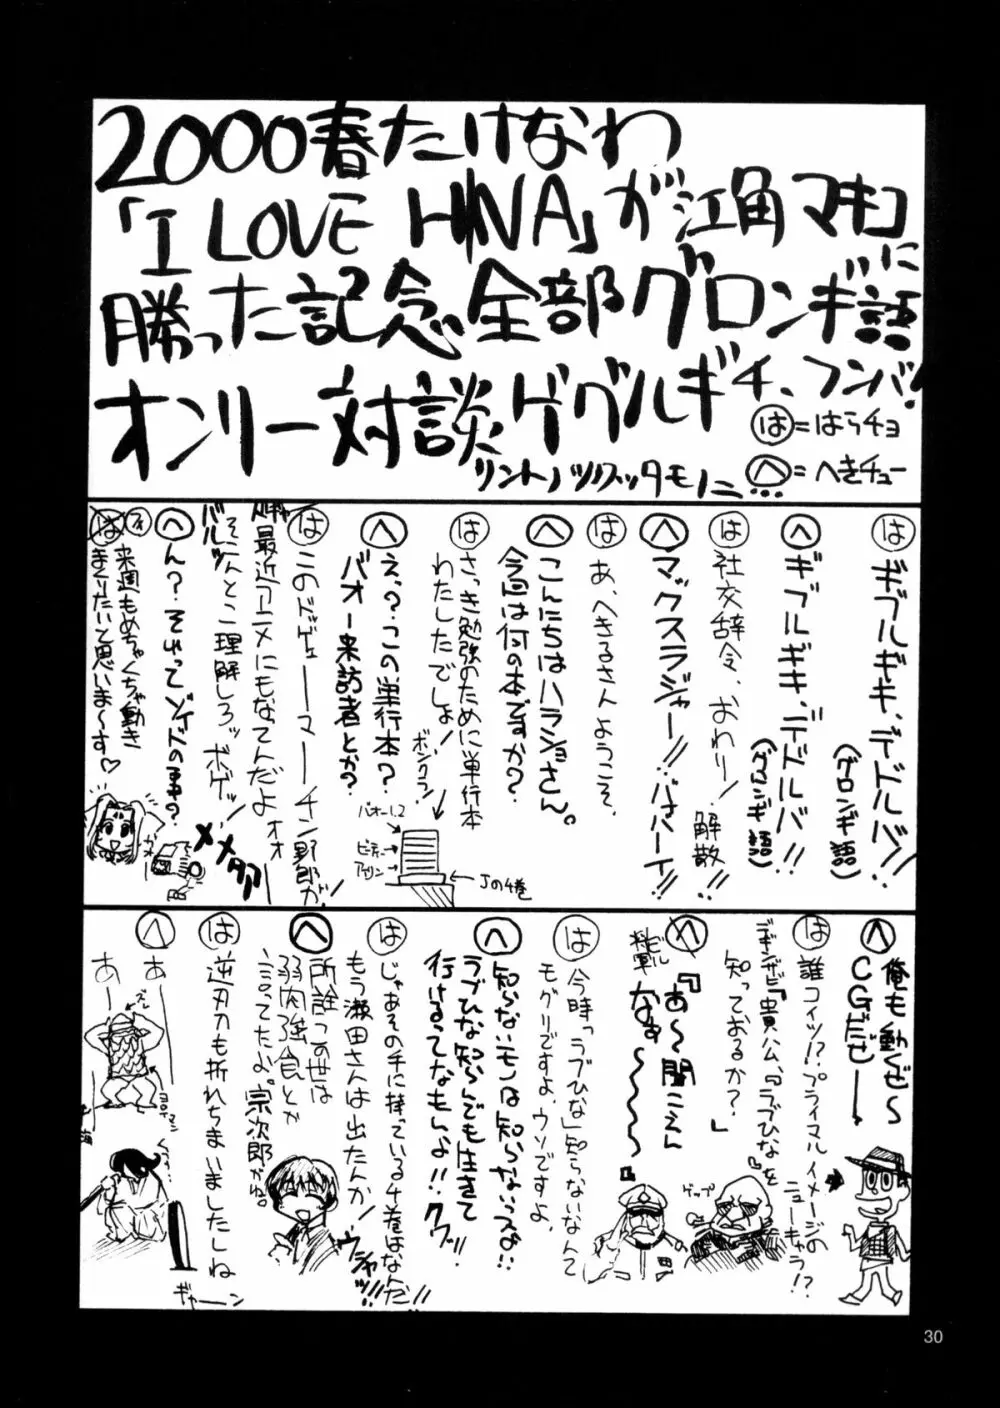 2000春たけなわ
「I LOVE HINA」が江角マキコに
勝った記念全部グロンギ語
オンリー対談ゲゲルギチ、フンバ!
リントノツカッタモノニ…
は=はらチョ
へ=へきチュー
は ギブルギキ、デドルバ!!
(グロンギ語)
へ ギブルギキ、デドルバ!!
(グロンギ語)
は 社交辞令、おわり!
解散!!
へ マックスラジャー!!バハハーイ!!
は あ、へきるさんようこそ、
へ こんにちはハラショさん。
今回は何の本ですか?
は さっき勉強のために単行本
わたしたでしょ!
ボンクラ!
へ えっ?この単行本?
バオー来訪者とか?
バオー1,2
ビーティー
アイリン
Jの4巻
は このドッゲェーーマーーチン野郎が!
最近アニメにもなってんだよ オオ
そこんとこ理解しろッ ボゲッ!
バルッ
へ ん?それってゾイドの事?
メメタア
は 来週もめちゃくちゃ動き
まくりたいと思いま〜す♡
へ 俺も動くぜ〜
CGだぜ——!
は 誰コイツ!?プライマルイメージの
ニューキャラ!?
デギンザビ『貴公、『ラブひな』を
知っておるか?』
ゲップ
へ 『あ〜聞こえん
なぁ〜〜〜〜〜』
ビル
将軍
は 今時「ラブひな」知らないなんて
モグリですよ、ウソですよ、
へ 知らないモンは知らないっスよ!!
ラブひな知らんでも生きて
行けるってなもんよ!!クワッ!!
は じゃあその手に持っている4巻はなんだ!!
もう瀬田さんは出たんか!
ウシャッ!!
へ 所詮この世は
弱肉強食とか
言ってたよ。宗次郎がね。
は 逆刃刀も折れちまいましたしね
ギャーン
へ あー
あー